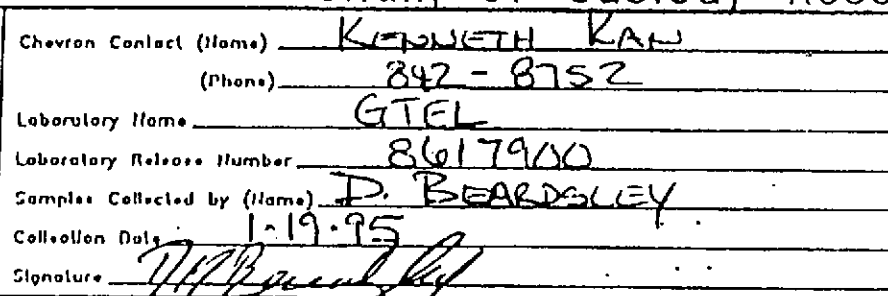 Chain of Custody Reco
Chevron Contact (Name) KENNETH KAN
(Phone) 842-8752
Laboratory Name GTEL
Laboratory Release Number 8617900
Samples Collected by (Name) D. BEARDSLEY
Collection Date 1-19-95
Signature